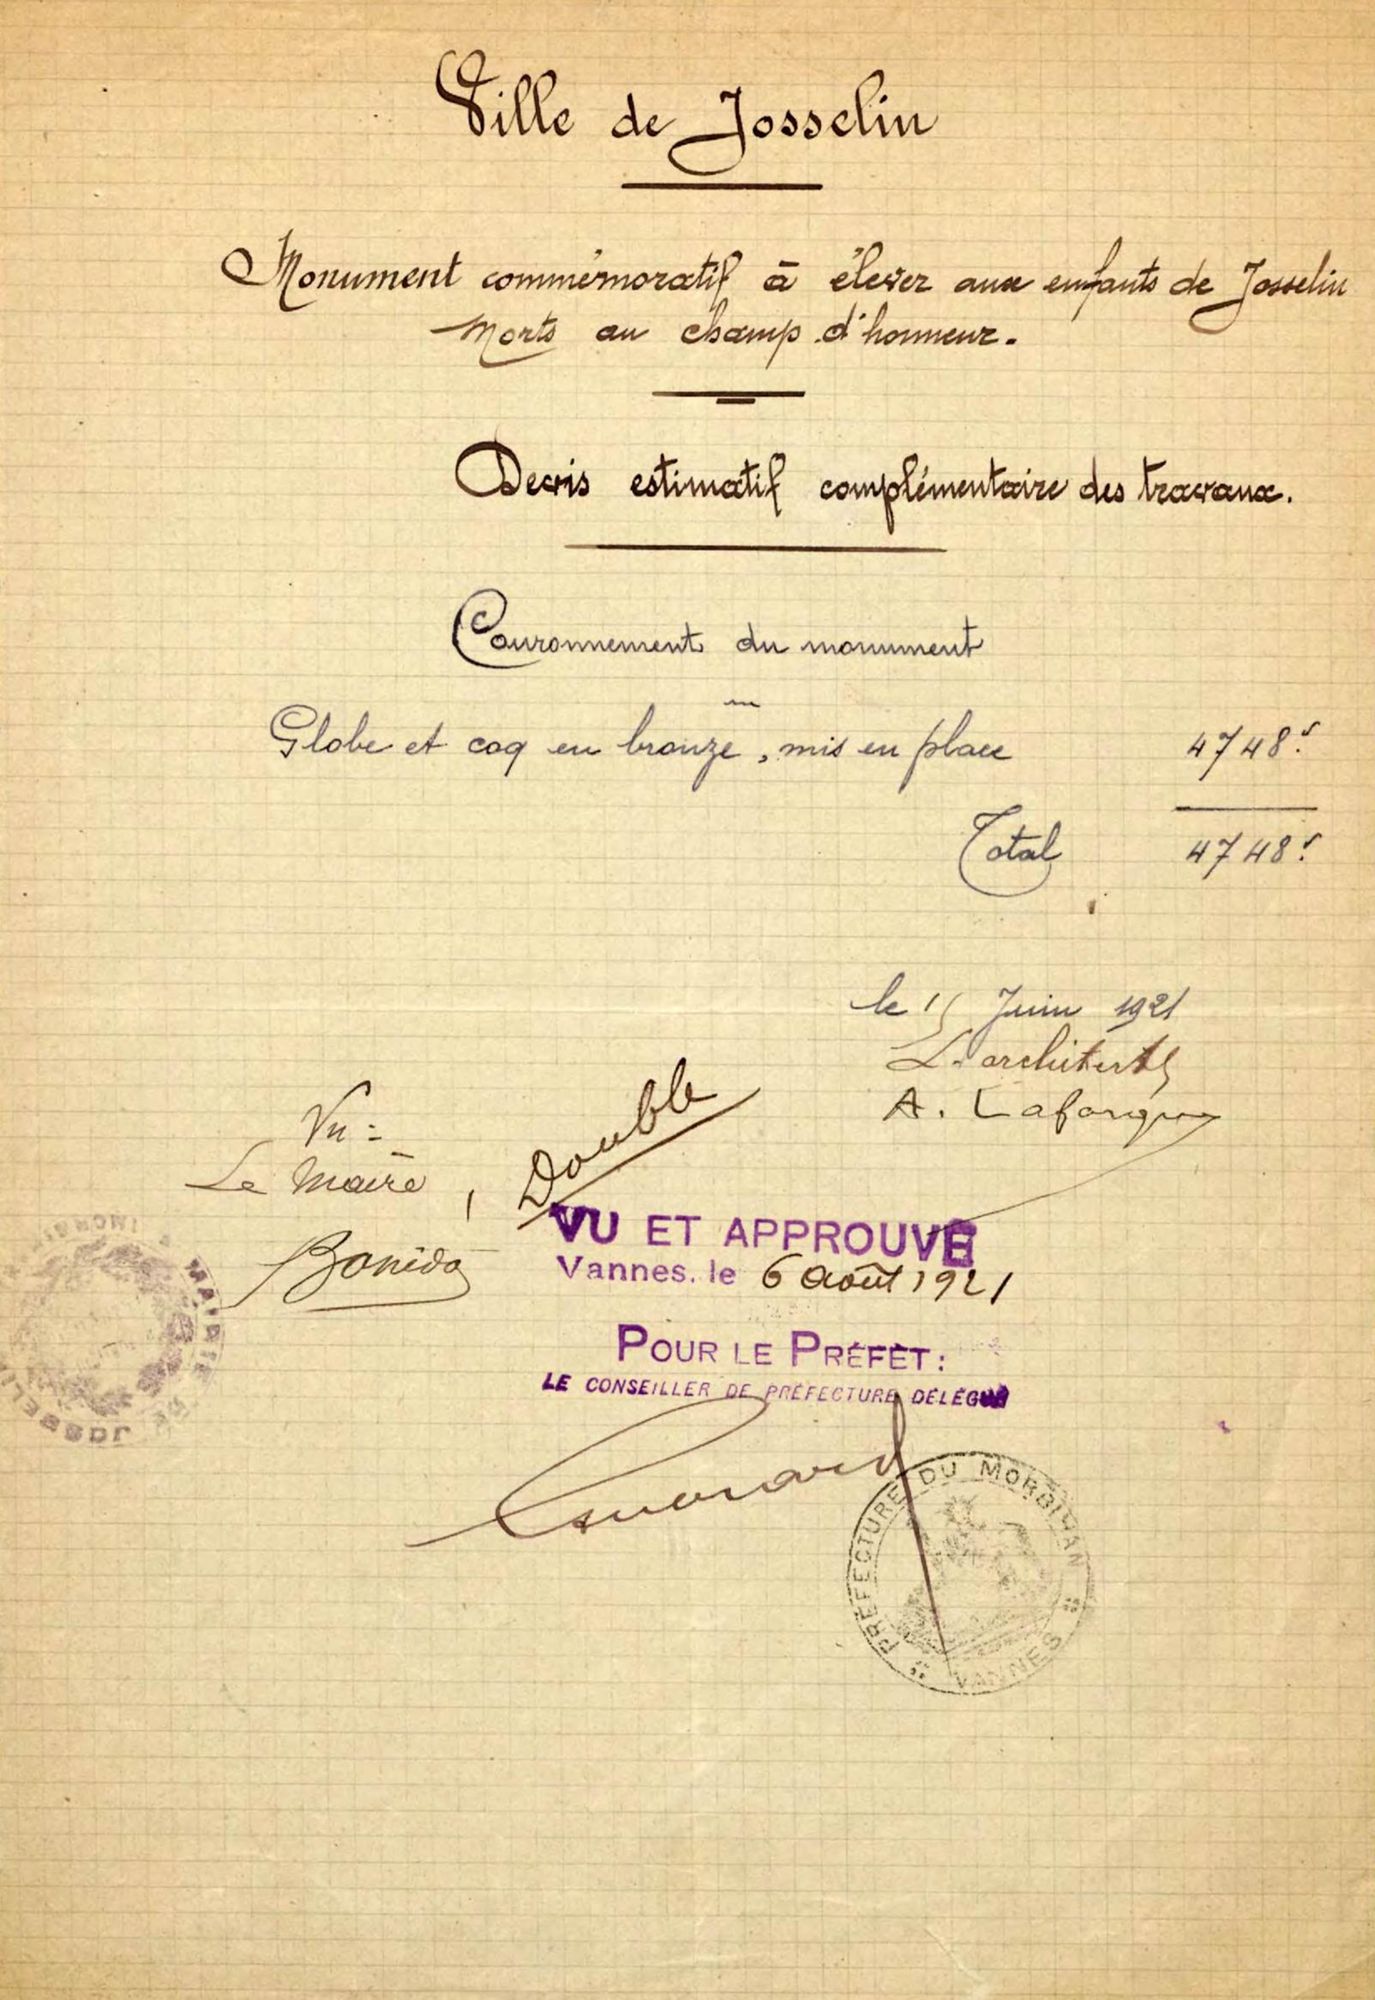 Ville de Josselin
Monument commémoratif à élever aux enfants de Josselin
Morts au champ d'honneur.
Devis estimatif complémentaire des travaux.
Couronnement du monument
Globe et coq en bronze, mis en place 4748 f
Total 4748 f
le 15 Juin 1921
L'architecte
A. Lafargue
Vu :
Le Maire,
Double
VU ET APPROUVÉ
Vannes, le 6 Août 1921
POUR LE PRÉFET:
LE CONSEILLER DE PRÉFECTURE DÉLÉGUÉ
MAIRIE DE JOSSELIN
PRÉFECTURE DU MORBIHAN
VANNES